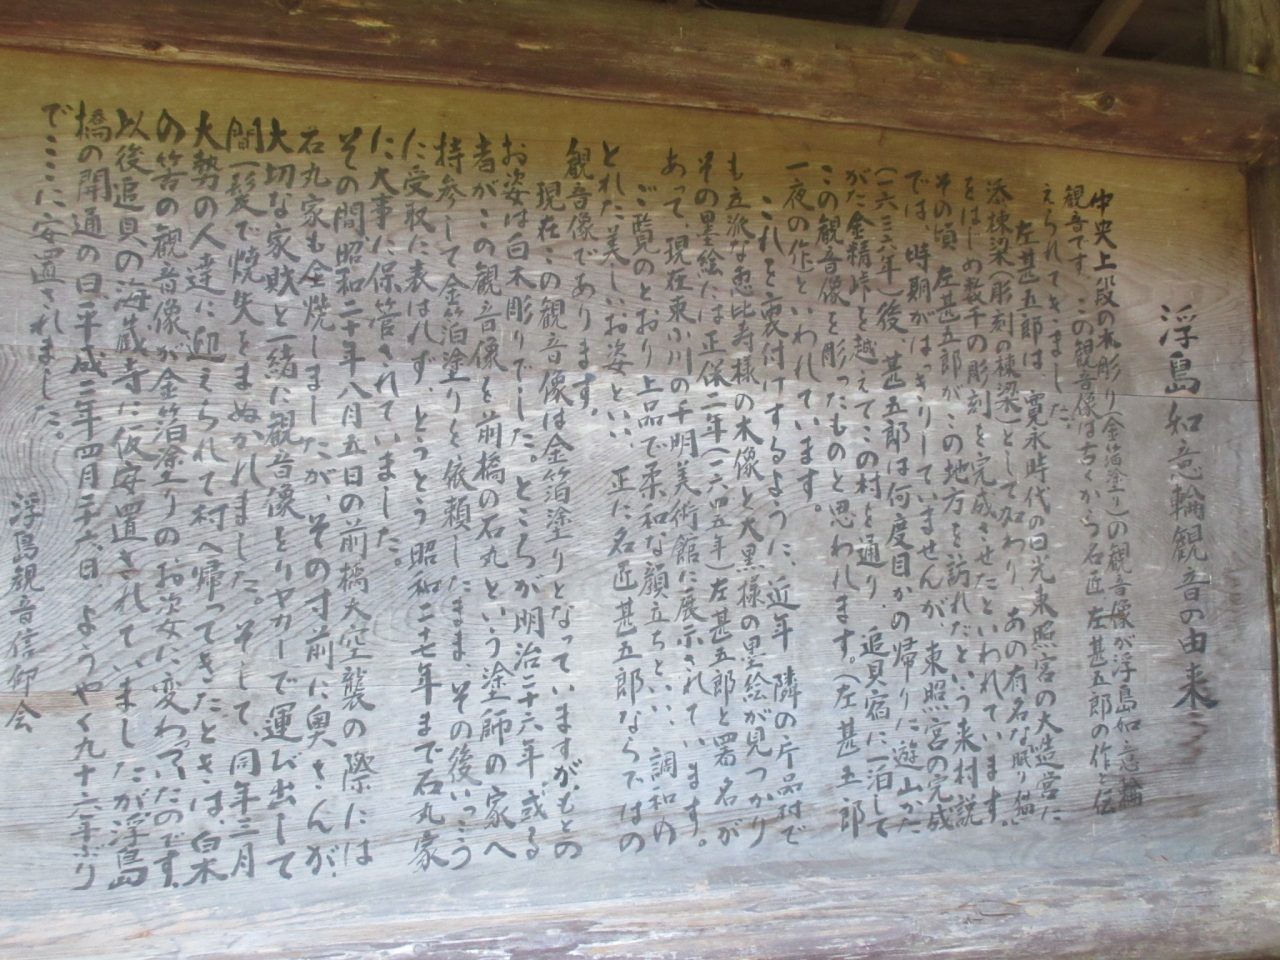 浮島如意輪観音の由来
中央上段の木彫り(金箔塗り)の観音像が浮島如意輪
観音です。この観音像は古くから名匠左甚五郎の作と伝
えられてきました。
左甚五郎は、寛永時代の日光東照宮の大造営に
添棟梁(彫刻の棟梁)として加わり、あの有名な眠り猫
をはじめ数千の彫刻を完成させたといわれています。
その頃、左甚五郎がこの地方を訪れたという来村説
では、時期がはっきりしていませんが、東照宮の完成
(一六三六年)後、甚五郎は何度目かの帰りに遊山かた
がた金精峠を越えてこの村を通り、追貝宿に一泊して
この観音像を彫ったものと思われます。(左甚五郎
一夜の作といわれています。
これを裏付けするように、近年、隣の片品村で
も立派な恵比寿様の木像と大黒様の墨絵が見つかり
その墨絵には正保二年(一六四五年)左甚五郎と署名が
あって、現在東小川の千明美術館に展示されています。
ご覧のとおり、上品で柔和な顔立ちといい、調和の
とれた美しいお姿といい、正に名匠甚五郎ならではの
観音像であります。
現在この観音像は金箔塗りとなっていますが、もとの
お姿は白木彫りでした。ところが明治二十六年、或る
者がこの観音像を前橋の石丸という塗師の家へ
持参して金箔塗りを依頼したまま、その後いっこう
に受取に表はれず、とうとう昭和二十七年まで石丸家
に大事に保管されていました。
その間、昭和二十年八月五日の前橋大空襲の際には
石丸家も全焼しましたが、その寸前に奥さんが、
大切な家財と一緒に観音像をリヤカーで運び出して
間一髪で焼失をまぬかれました。そして、同年三月
大勢の人達に迎えられて村へ帰ってきたときは、白木
の筈の観音像が金箔塗りのお姿に変わっていたのです。
以後追貝の海蔵寺に仮安置されていましたが浮島
橋の開通の日、平成二年四月二十六日、ようやく九十六年ぶり
でここに安置されました。
浮島観音信仰会